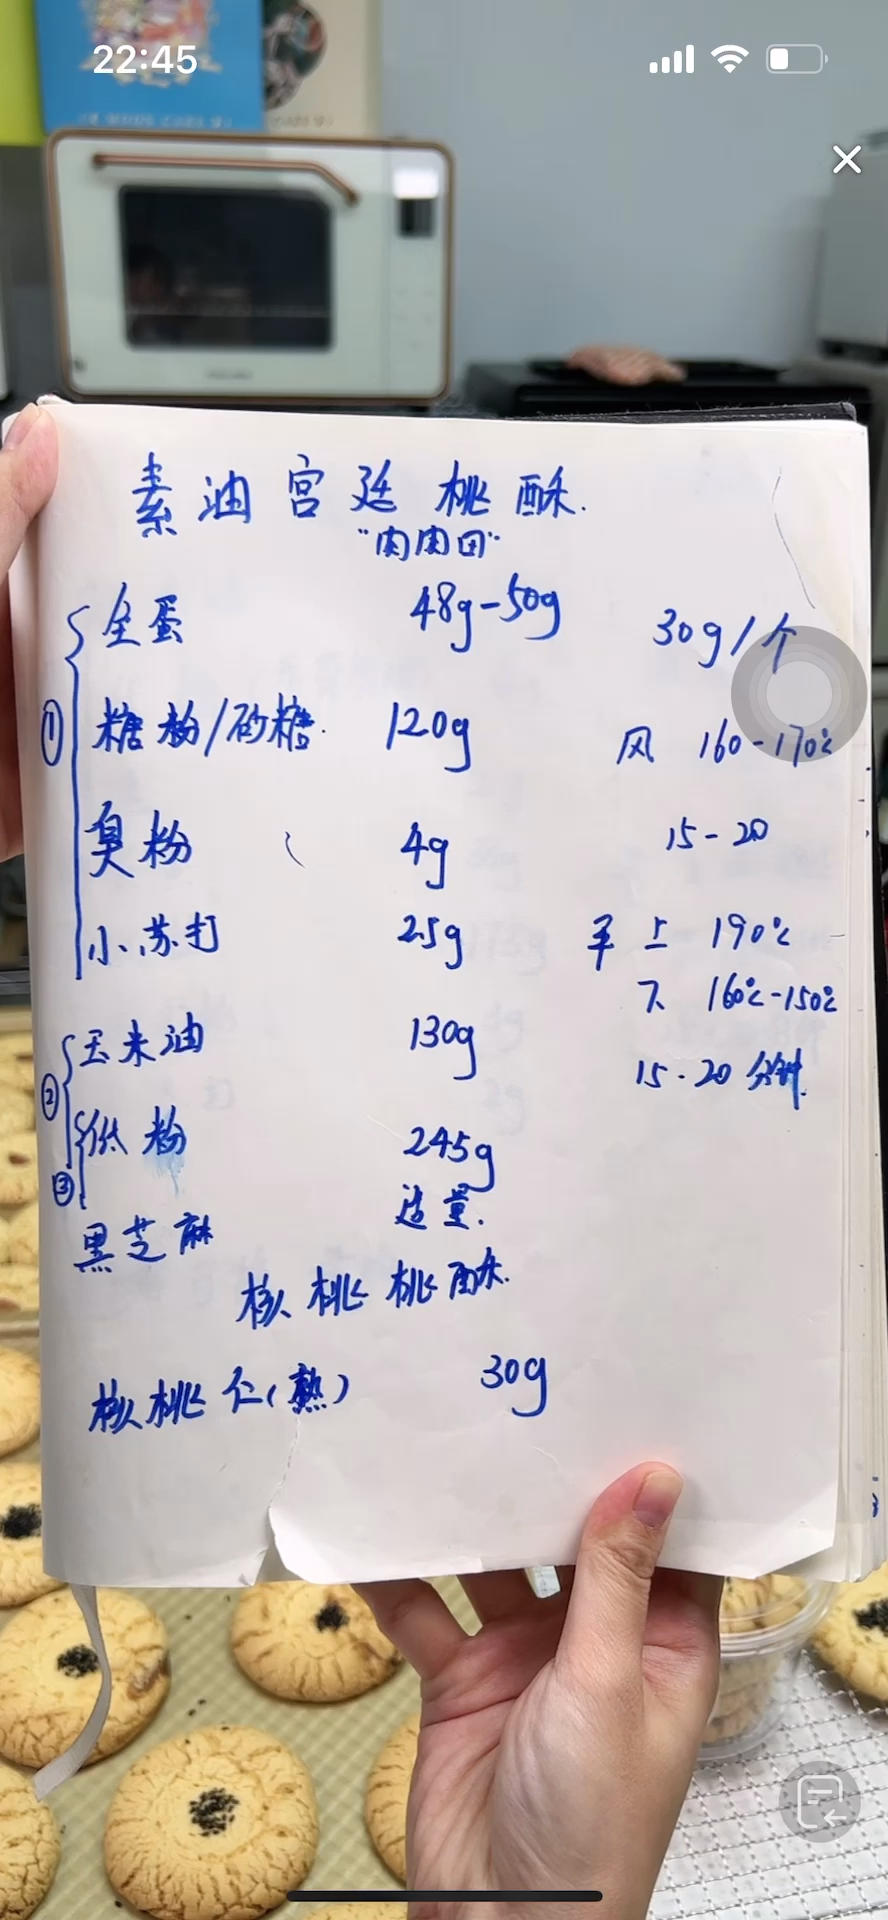 22:45
素油宫廷桃酥.
"肉肉田"
全蛋 48g-50g 30g/个
① 糖粉/砂糖. 120g 风 160-170℃
臭粉 4g 15-20
小苏打 25g 平 上 190℃
下 160℃-150℃
② 玉米油 130g 15.20分钟.
③ 低粉 245g
黑芝麻 适量.
核桃桃酥.
核桃仁(熟) 30g